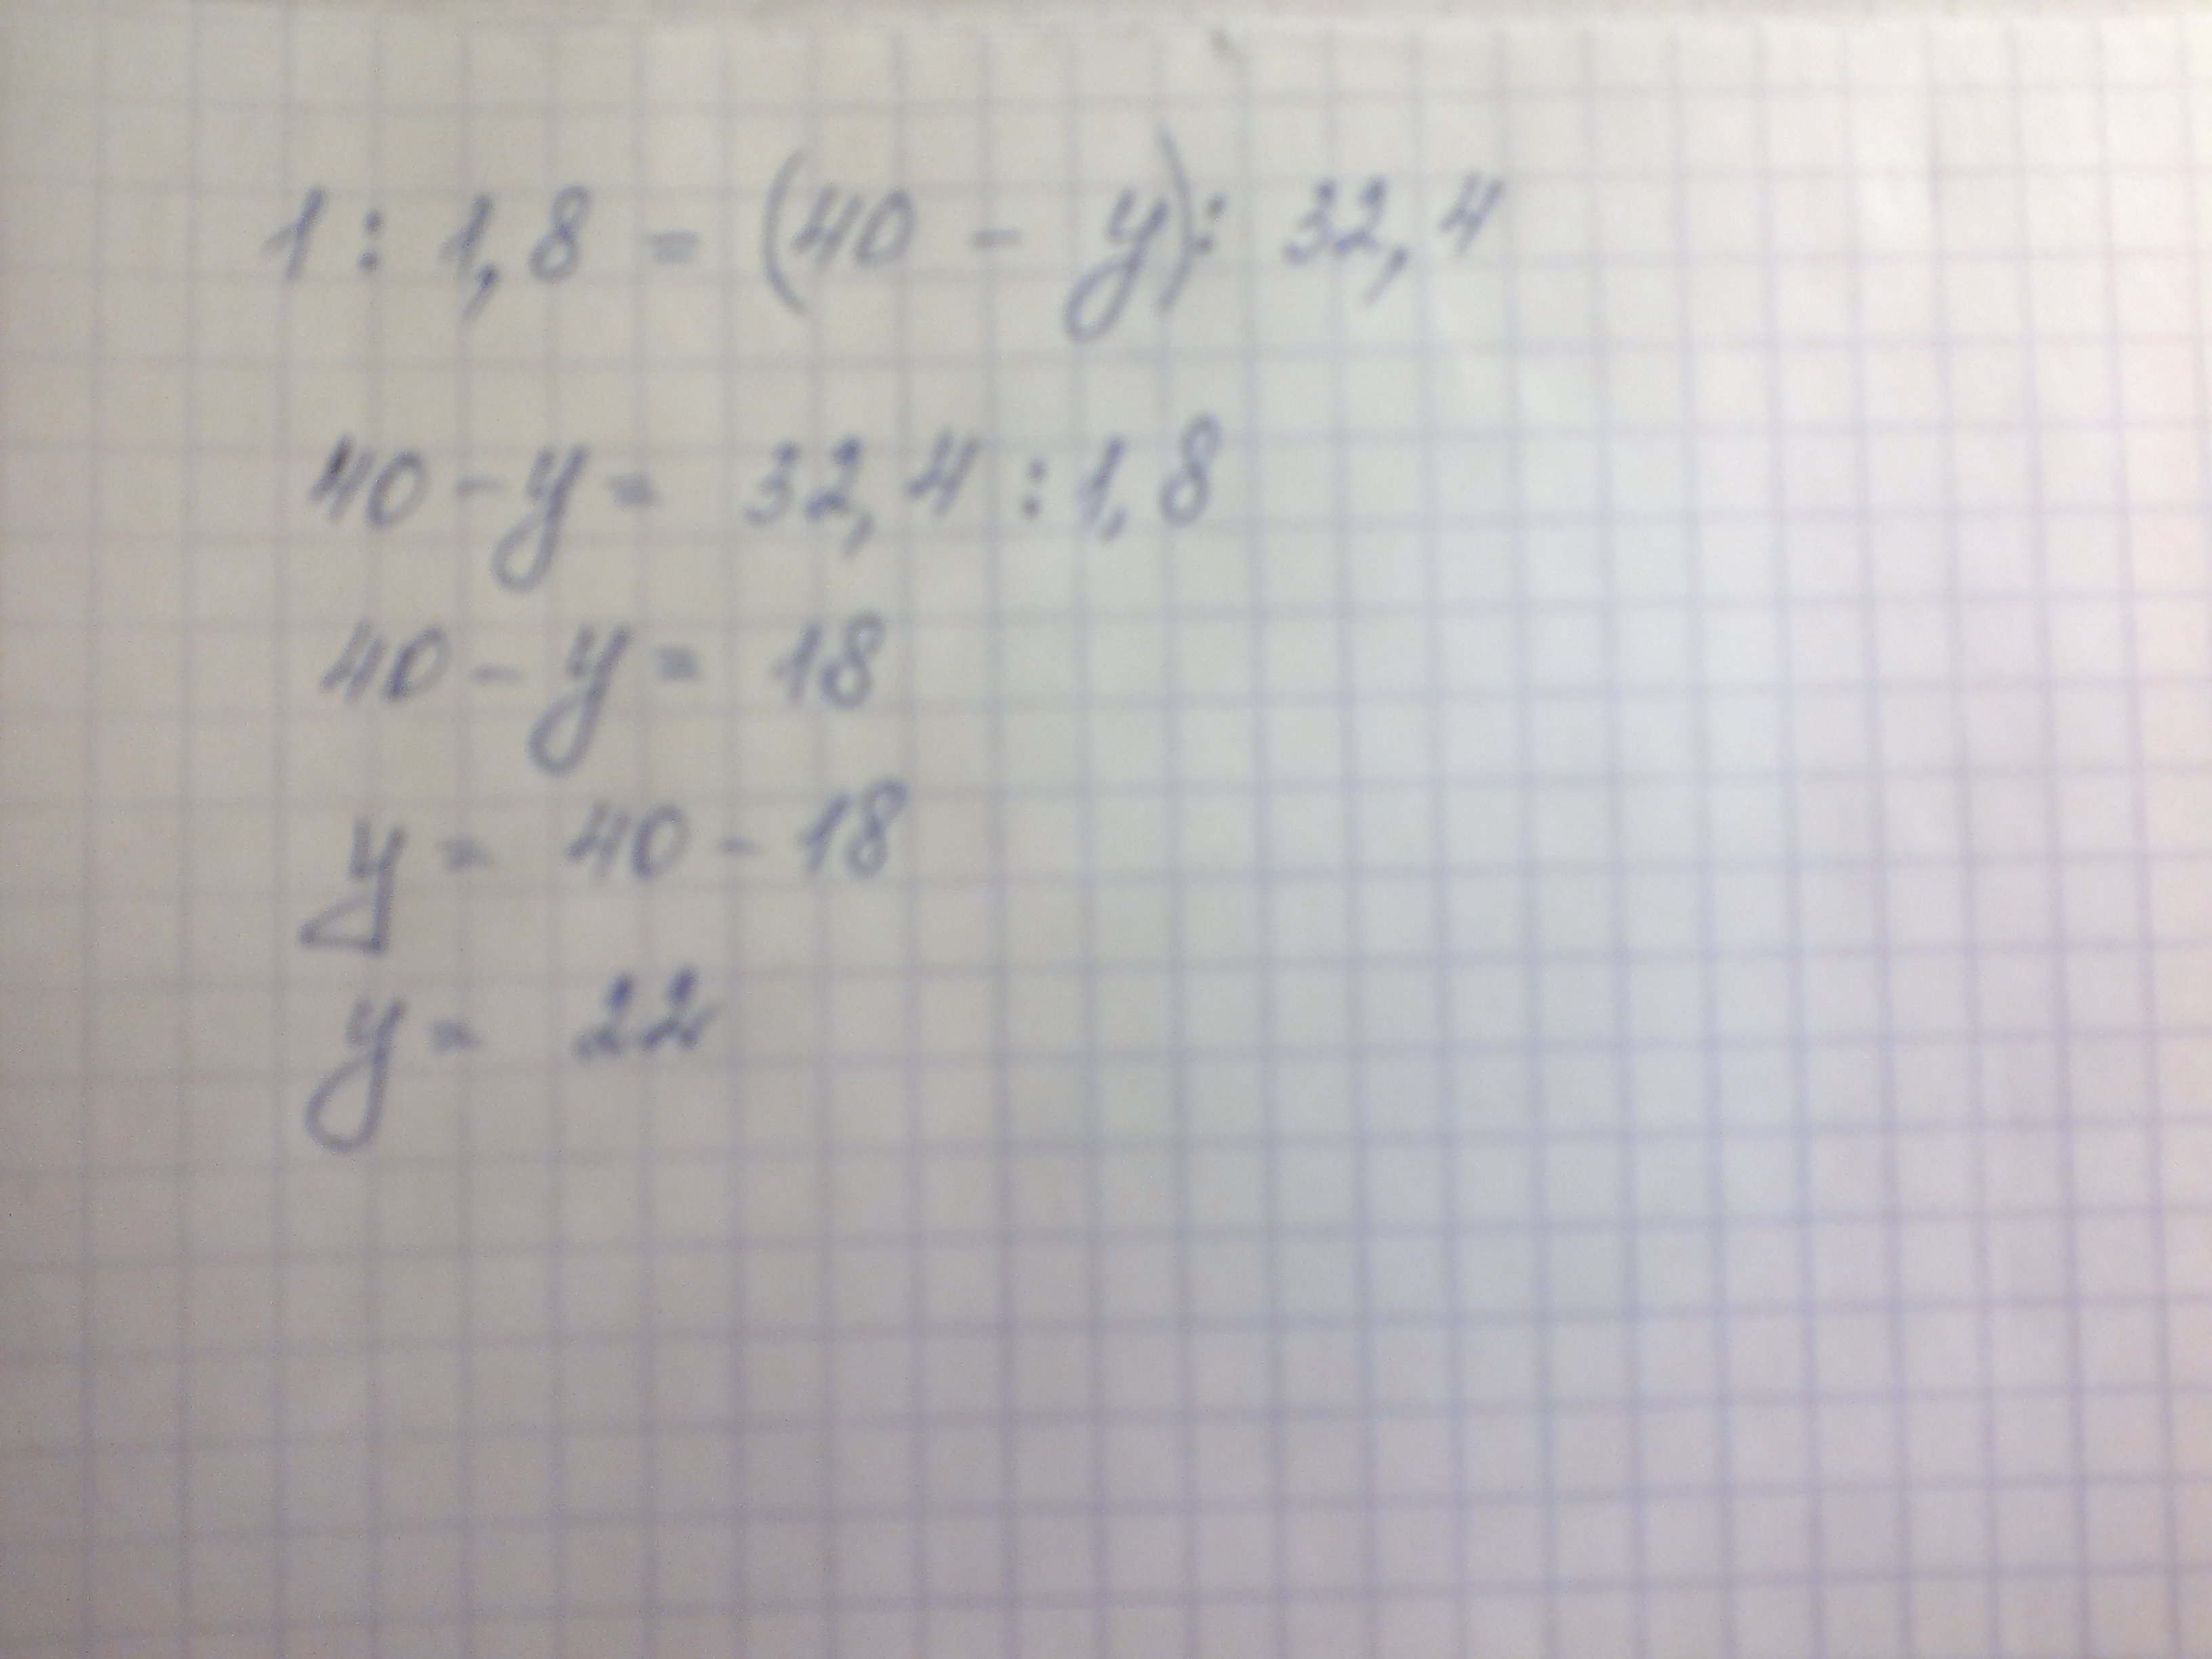 1 : 1,8 = (40 - y) : 32,4
40 - y = 32,4 : 1,8
40 - y = 18
y = 40 - 18
y = 22